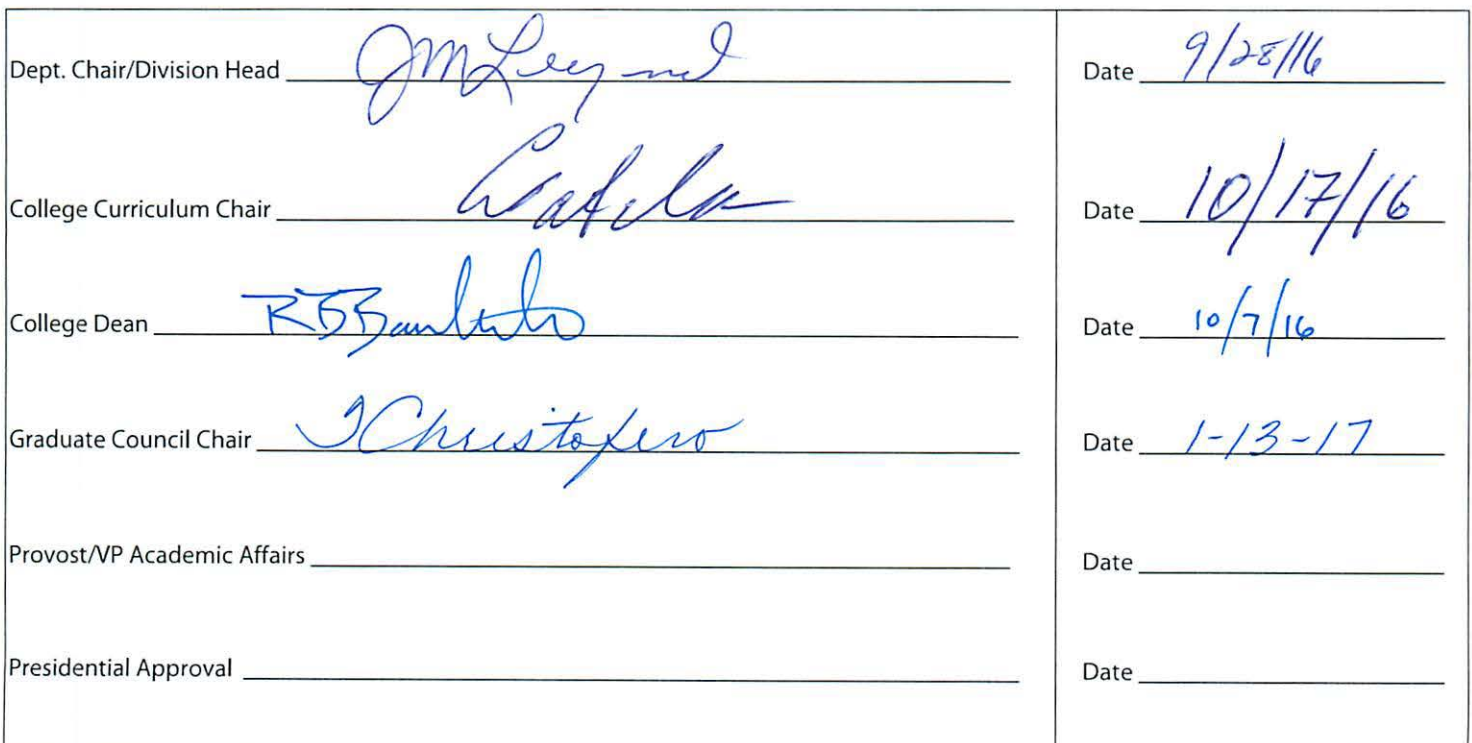 Dept. Chair/Division Head Date 9/28/16
College Curriculum Chair Date 10/17/16
College Dean Date 10/7/16
Graduate Council Chair Date 1-13-17
Provost/VP Academic Affairs Date
Presidential Approval Date